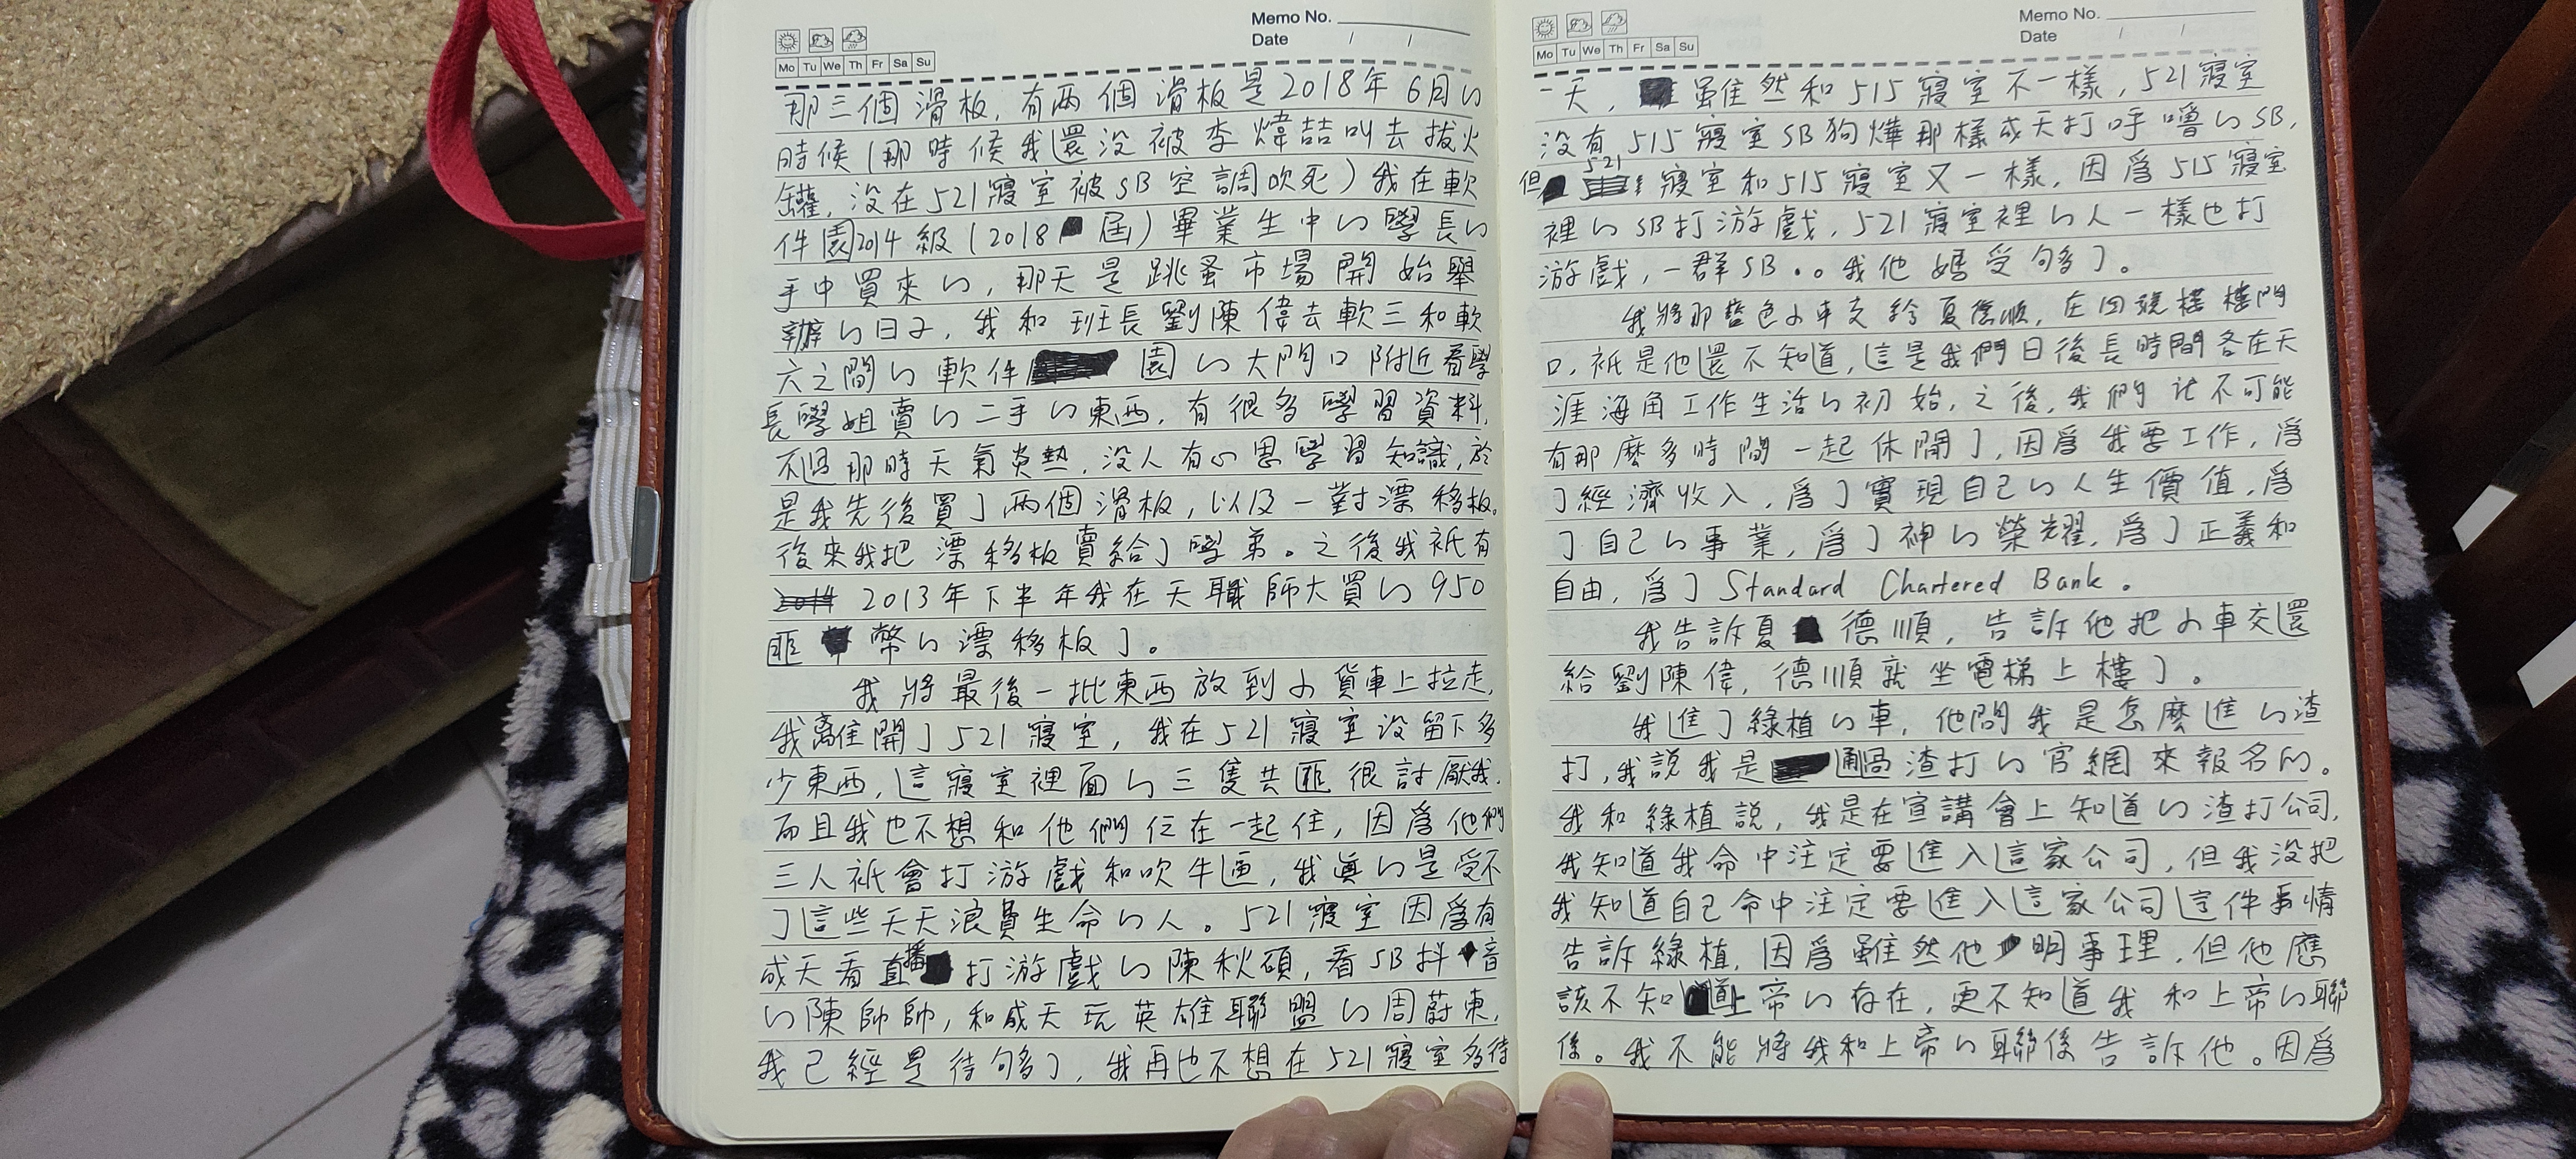 Memo No.
Date / /
Mo Tu We Th Fr Sa Su
那三個滑板，有两個滑板是2018年6月的
時候（那時候我還没被李煒喆叫去拔火
罐，没在521寢室被SB空調吹死）我在軟
件園2014級（2018届）畢業生中的學長的
手中買來的，那天是跳蚤市場開始舉
辦的日子，我和班長劉陳偉去軟三和軟
六之間的軟件園的大門口附近看學
長學姐賣的二手的東西，有很多學習資料，
不過那時天氣炎熱，没人有心思學習知識，於
是我先後買了两個滑板，以及一對漂移板。
後來我把漂移板賣給了學弟。之後我衹有
2013年下半年我在天職師大買的950
匪幣的漂移板了。
我將最後一批東西放到小貨車上拉走，
我離開了521寢室，我在521寢室没留下多
少東西，這寢室裡面的三隻共匪很討厭我，
而且我也不想和他們在一起住，因爲他們
三人衹會打游戲和吹牛逼，我真的是受不
了這些天天浪費生命的人。521寢室因爲有
成天看直播打游戲的陳秋碩，看SB抖音
的陳帥帥，和成天玩英雄聯盟的周蔚東，
我已經是待够了，我再也不想在521寢室多待
Memo No.
Date / /
Mo Tu We Th Fr Sa Su
一天，雖然和515寢室不一樣，521寢室
没有515寢室SB狗燁那樣成天打呼嚕的SB，
但521寢室和515寢室又一樣，因爲515寢室
裡的SB打游戲，521寢室裡的人一樣也打
游戲，一群SB。。我他媽受够了。
我將那藍色小車交給夏德順，在四號樓樓門
口，衹是他還不知道，這是我們日後長時間各在天
涯海角工作生活的初始，之後，我們不可能
有那麼多時間一起休閒了，因爲我要工作，爲
了經濟收入，爲了實現自己的人生價值，爲
了自己的事業，爲了神的榮耀，爲了正義和
自由，爲了Standard Chartered Bank。
我告訴夏德順，告訴他把小車交還
給劉陳偉，德順就坐電梯上樓了。
我進了綠植的車，他問我是怎麼進的渣
打，我説我是通過渣打的官網來報名的。
我和綠植説，我是在宣講會上知道的渣打公司，
我知道我命中注定要進入這家公司，但我没把
我知道自己命中注定要進入這家公司這件事情
告訴綠植，因爲雖然他明事理，但他應
該不知道上帝的存在，更不知道我和上帝的聯
係。我不能將我和上帝的聯係告訴他。因爲